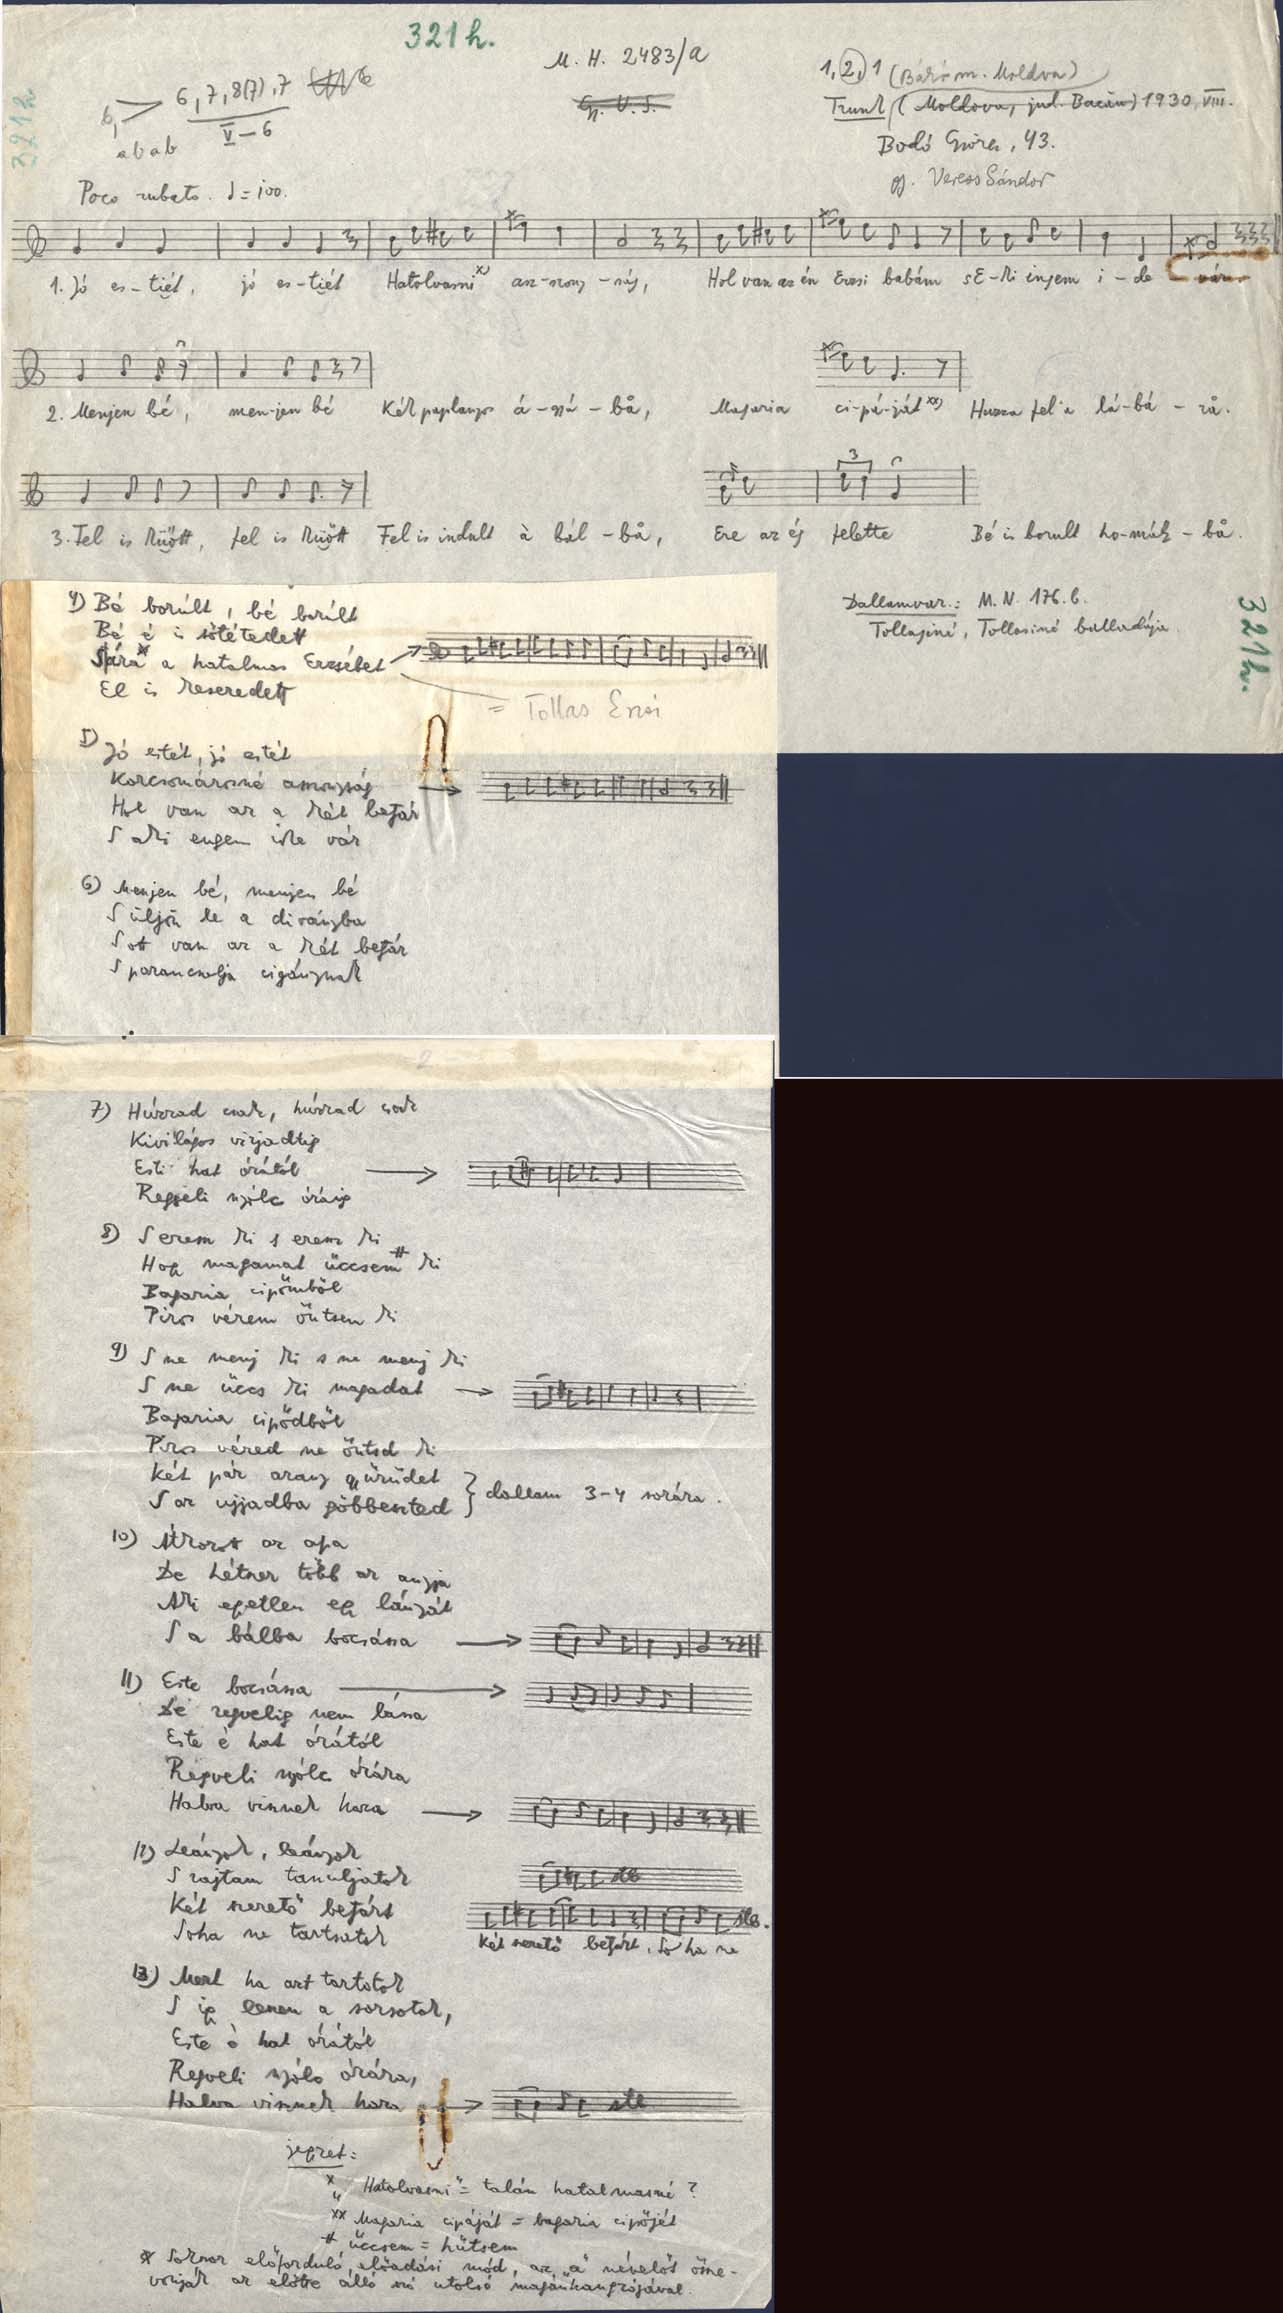 321 h.
M. H. 2483/a
1, 2, 1 (Báró m. Moldva)
6, 7, 8(7), 7
6,
V – 6
a b a b
321 h.
Gy. V. S.
Trunk (Moldova, jud. Bacău) 1930, VIII.
Bodó Györei, 43.
gy. Veress Sándor
Poco rubato. ♩= 100.
1. Jó es-tiét, jó es-tiét Hatolvasni x) asz-szony-ság, Hol van az én Erzsi babám s E-ki ingem i-de vár.
2. Menjen bé, men-jen bé Két paplanyos á-gyá-bå, Magaria ci-pá-ját xx) Huzza fel a lá-bá-rå.
3
3. Fel is küött, fel is küött Fel is indult à bál-bå, Ere az ég felette Bé is borult ho-mály-bå.
4) Bé borúlt, bé borúlt
Bé é is sötétedett
Sára a hatalmas Erzsébet
El is keseredett
= Tollas Erzsi
Dallamvar.: M. N. 176. b.
Tollasiné, Tollosiné balladája
321 h.
5) Jó estét, jó estét
Korcsomárosné asszonyság
Hol van az a két betyár
S aki engem ide vár
6) Menjen bé, menjen bé
S üljön le a diványba
S ott van az a két betyár
S parancsolja cigánynak
2
7) Húzzad csak, húzzad csak
Kivilágos virjadtig
Esti hat órától
Reggeli nyólc óráig
8) S erem ki s erem ki
Hogy magamat üccsem # ki
Bagaria cipőmből
Piros vérem öntsen ki
9) S ne menj ki s ne menj ki
S ne üccs ki magadat
Bagaria cipődből
Piros véred ne öntsd ki
Két pár arany gyűrüdet
S az ujjadba göbbented } dallam 3-4 sorára.
10) Átkozott az apa
De hétszer több az anyja
Aki egyetlen egy lányát
S a bálba bocsássa
11) Este bocsássa
De regvelig nem lássa
Este é hat órától
Regveli nyólc órára
Halva visznek haza
12) Leányok, leányok
S rajtam tanuljatok
Két szerető betyárt
Soha ne tartsatok
stb
stb.
Két szerető betyárt, So ha ne
13) Mert ha azt tartotok
S így leszen a sorsotok,
Este é hat órától
Regveli nyólc órára,
Halva visznek haza
stb
jegyzet:
x "Hatolvasni" = talán hatalmasné?
xx Magaria cipáját = bagaria cipőjét
# üccsem = hűtsem
* Sokszor előforduló előadási mód, az "a" névelőt össze-
vonják az előtte álló szó utolsó magánhangzójával.